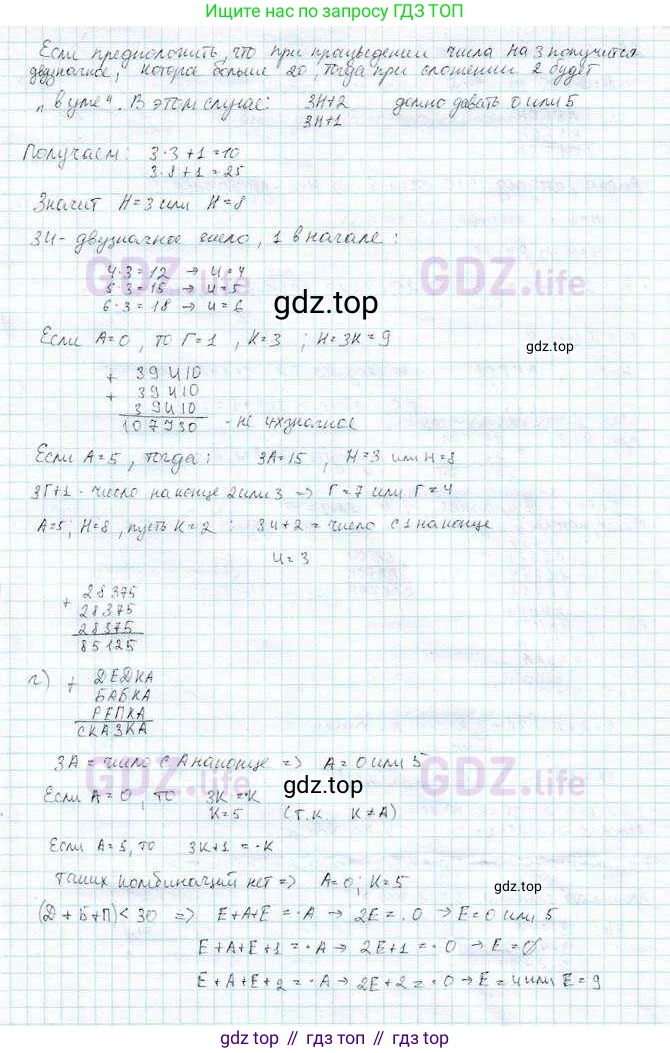 Ищите по запросу ГДЗ ТОП
Если предположить, что при произведении числа на 3 получится
двузначное, которое больше 20, тогда при сложении 2 будет
"в уме". В этом случае: 3Н+2 должно давать 0 или 5
3Н+1
Получаем: 3·3+1=10
3·8+1=25
Значит Н=3 или Н=8
3И - двузначное число, 1 в начале:
4·3=12 → И=4
5·3=15 → И=5
6·3=18 → И=6
gdz.top
Если А=0, то Г=1, К=3; Н=3К=9
gdz.top
+ 39410
+ 39410
39410
107930 - не 4хзначное
Если А=5, тогда: 3А=15, Н=3 или Н=8
3Г+1 - число на конце 2 или 3 => Г=7 или Г=4
А=5, Н=8, пусть К=2: 3И+2 = число с 1 на конце
И=3
+ 28375
28375
28375
85125
г) + ДЕДКА
БАБКА
РЕПКА
СКАЗКА
GDZ.life
GDZ.life
3А = число с А на конце => А=0 или 5
GDZ.life
GDZ.life
Если А=0, то 3К=·К
gdz.top
К=5 (т.к К≠А)
gdz.top
Если А=5, то 3К+1=·К
таких комбинаций нет => А=0; К=5
(Д+Б+П)<30 => Е+А+Е=·А → 2Е=·0 → Е=0 или 5
Е+А+Е+1=·А → 2Е+1=·0 → Е=∅
Е+А+Е+2=·А → 2Е+2=·0 → Е=4 или Е=9
gdz.top // гдз топ // гдз.топ